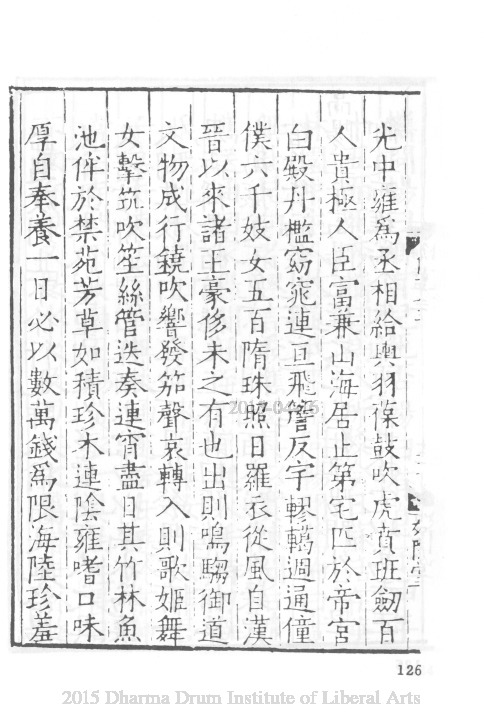 光中雍爲丞相給輿羽葆鼓吹虎賁班劒百
人貴極人臣富兼山海居止第宅匹於帝宮
白殿丹檻窈窕連亘飛簷反宇轇轕週通僮
僕六千妓女五百隋珠照日羅衣從風自漢
晉以來諸王豪侈未之有也出則鳴騶御道
文物成行鐃吹響發笳聲哀轉入則歌姬舞
女擊筑吹笙絲管迭奏連宵盡日其竹林魚
池侔於禁苑芳草如積珍木連陰雍嗜口味
厚自奉養一日必以數萬錢爲限海陸珍羞
126
2015 Dharma Drum Institute of Liberal Arts